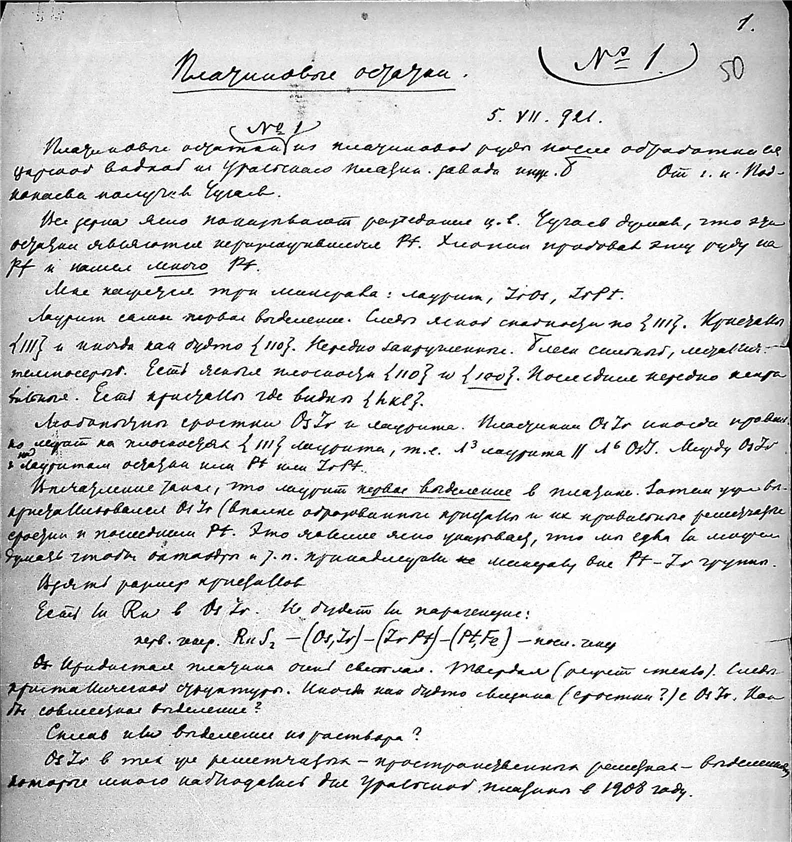 1.
№ 1.
50
Платиновые остатки.
5. VII. 921.
№ 1
Платиновые остатки из платиновой руды после обработки ея
царской водкой из Уральского платин. завода инж. Б От г. н. Под-
копаева получ. Чугаев.
Все зерна ясно показывают разъедание ц. в. Чугаев думает, что эти
остатки являются нерастворившиеся Pt. Хлопин пробовал эту руду на
Pt и нашел много Pt.
Мне встретился три минерала: лаурит, IrOs, IrPt.
Лаурит самое первое выделение. Следы ясной спайности по {111}. Кристаллы
{111} и иногда как будто {110}. Нередко закругленные. Блеск сильный, металлич.-
темносерый. Есть ясные плоскости {110} и {100}. Последние нередко непра-
вильные. Есть кристаллы где видны {hkl}.
Любопытны сростки OsIr и лаурита. Пластинки OsIr иногда правиль-
но лежат на плоскостях {111} лаурита, т.е. Λ³ лаурита || Λ⁶ OsI. Между OsIr
и лауритом остатки или Pt или IrPt.
Впечатление такое, что лаурит первое выделение в платине. Затем уже вы-
кристаллизовался OsIr (вполне образованные кристаллы и их правильные решетчатые
сростки и последним Pt. Это явление ясно указывает, что мы едва ли можем
думать чтобы октаэдры и т.п. принадлежали не минералу вне Pt-Ir группы.
Взять размер кристаллов
Есть ли Ru в OsIr. Не будет ли парагенезис:
перв. генер. RuS₂ – (Os,Ir) – (IrPt) – (Pt,Fe) – посл. генер
Иридистая платина очень светлая. Твердая (режет стекло). Следы
кристаллической структуры. Иногда как будто (сростки?) с OsIr. Как
бы совместное выделение?
Сплав или выделение из раствора?
OsIr в тех же решетчатых – пространственных решетках – выделениях,
которые много наблюдались для Уральской платины в 1908 году.